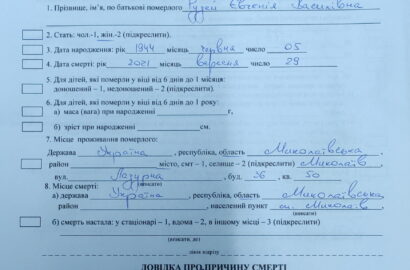 1. Прізвище, ім'я, по батькові померлого Євгенія Василівна
2. Стать: чол.-1, жін.-2 (підкреслити).
3. Дата народження: рік 1944 місяць червня число 05
4. Дата смерті: рік 2021 місяць вересня число 29
5. Для дітей, які померли у віці від 6 днів до 1 місяця:
доношений – 1, недоношений – 2 (підкреслити).
6. Для дітей, які померли у віці від 6 днів до 1 року:
а) маса (вага) при народженні г,
б) зріст при народженні см.
7. Місце проживання померлого:
Держава Україна, республіка, область Миколаївська
район місто, смт – 1, селище – 2 (підкреслити) Миколаїв,
вул. Лазурна, буд. 36, кв. 50
8. Місце смерті: (вписати)
а) держава Україна, республіка, область Миколаївська
район, населений пункт м. Миколаїв
(вписати)
б) смерть настала: у стаціонарі – 1, вдома – 2, в іншому місці – 3 (підкреслити)
(вписати, де)
лінія відрізу
ДОВІДКА ПРО ПРИЧИНУ СМЕРТІ